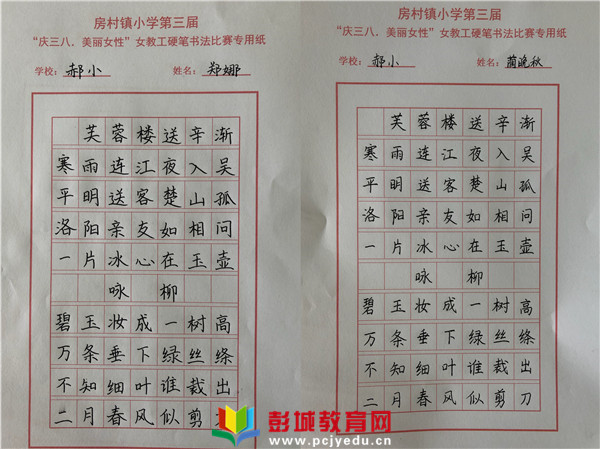 房村镇小学第三届
“庆三八．美丽女性”女教工硬笔书法比赛专用纸
学校：郝小 姓名：郑娜
芙蓉楼送辛渐
寒雨连江夜入吴
平明送客楚山孤
洛阳亲友如相问
一片冰心在玉壶
咏柳
碧玉妆成一树高
万条垂下绿丝绦
不知细叶谁裁出
二月春风似剪
房村镇小学第三届
“庆三八．美丽女性”女教工硬笔书法比赛专用纸
学校：郝小 姓名：蔺晚秋
芙蓉楼送辛渐
寒雨连江夜入吴
平明送客楚山孤
洛阳亲友如相问
一片冰心在玉壶
咏柳
碧玉妆成一树高
万条垂下绿丝绦
不知细叶谁裁出
二月春风似剪刀
彭城教育网
www.pcjyedu.cn